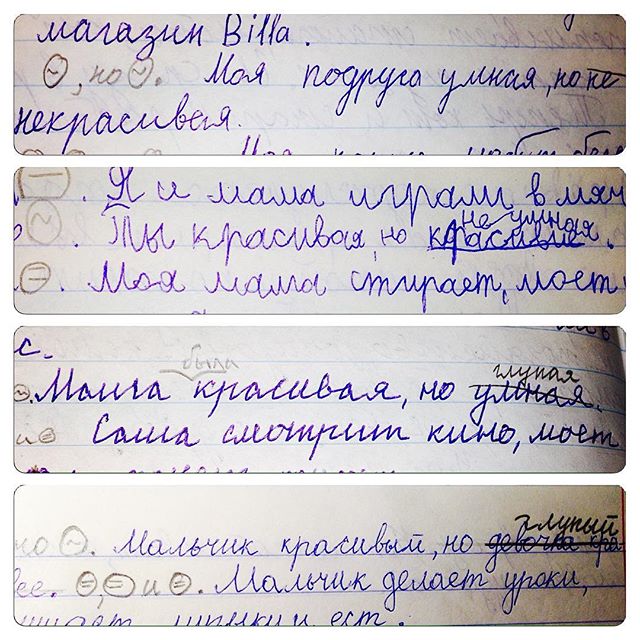 магазин Billa.
, но . Моя подруга умная, но не
некрасивая.
Я и мама играли в мяч
не умная
Ты красивая, но красивие.
Моя мама стирает, моет
с.
была
глупая
Маша красивая, но умная.
и Саша смотрит кино, моет
глупый
но . Мальчик красивый, но девочка кра
вее. , и . Мальчик делает уроки,
и ест.